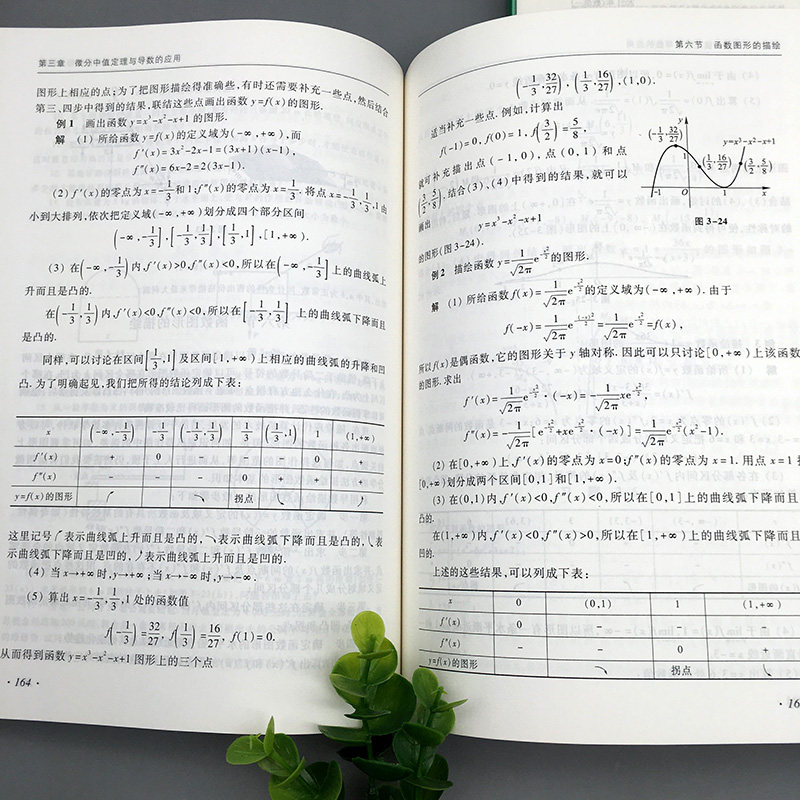 第三章 微分中值定理与导数的应用
图形上相应的点;为了把图形描绘得准确些,有时还需要补充一些点,然后结合
第三、四步中得到的结果,联结这些点画出函数 y=f(x) 的图形.
例 1 画出函数 y=x³-x²-x+1 的图形.
解 (1) 所给函数 y=f(x) 的定义域为(-∞,+∞),而
f′(x)=3x²-2x-1=(3x+1)(x-1),
f″(x)=6x-2=2(3x-1).
(2) f′(x)的零点为 x=-1/3 和 1;f″(x)的零点为 x=1/3. 将点 x=-1/3,1/3,1 由
小到大排列,依次把定义域(-∞,+∞)划分成四个部分区间
(-∞,-1/3],[-1/3,1/3],[1/3,1],[1,+∞).
(3) 在(-∞,-1/3)内,f′(x)>0,f″(x)<0,所以在(-∞,-1/3]上的曲线弧上
升而且是凸的.
在(-1/3,1/3)内,f′(x)<0,f″(x)<0,所以在[-1/3,1/3]上的曲线弧下降而且
是凸的.
同样,可以讨论在区间[1/3,1]及区间[1,+∞)上相应的曲线弧的升降和凹
凸.为了明确起见,我们把所得的结论列成下表:
x (-∞,-1/3) -1/3 (-1/3,1/3) 1/3 (1/3,1) 1 (1,+∞)
f′(x) + 0 - - - 0 +
f″(x) - - - 0 + + +
y=f(x)的图形 拐点
这里记号 表示曲线弧上升而且是凸的, 表示曲线弧下降而且是凸的, 表
示曲线弧下降而且是凹的, 表示曲线弧上升而且是凹的.
(4) 当 x→+∞ 时,y→+∞;当 x→-∞ 时,y→-∞.
(5) 算出 x=-1/3,1/3,1 处的函数值
f(-1/3)=32/27, f(1/3)=16/27, f(1)=0.
从而得到函数 y=x³-x²-x+1 图形上的三个点
· 164 ·
第六节 函数图形的描绘
(-1/3,32/27),(1/3,16/27),(1,0).
适当补充一些点. 例如,计算出
f(-1)=0, f(0)=1, f(3/2)=5/8,
就可补充描出点(-1,0),点(0,1)和点
(3/2,5/8).结合(3)、(4)中得到的结果,就可以
画出
y=x³-x²-x+1
的图形(图 3-24).
y
(-1/3,32/27)
y=x³-x²-x+1
1
(1/3,16/27)
(3/2,5/8)
-1 O 1 x
图 3-24
例 2 描绘函数 y=1/√2π e^(-x²/2) 的图形.
解 (1) 所给函数 f(x)=1/√2π e^(-x²/2) 的定义域为(-∞,+∞). 由于
f(-x)=1/√2π e^(-(-x)²/2)=1/√2π e^(-x²/2)=f(x),
所以 f(x)是偶函数,它的图形关于 y 轴对称. 因此可以只讨论[0,+∞)上该函数
的图形. 求出
f′(x)=1/√2π e^(-x²/2)·(-x)=-1/√2π xe^(-x²/2),
f″(x)=-1/√2π [e^(-x²/2)+xe^(-x²/2)·(-x)]=1/√2π e^(-x²/2)(x²-1).
(2) 在[0,+∞)上,f′(x)的零点为 x=0;f″(x)的零点为 x=1. 用点 x=1
[0,+∞)划分成两个区间[0,1]和[1,+∞).
(3) 在(0,1)内,f′(x)<0,f″(x)<0,所以在[0,1]上的曲线弧下降而且
凸的.
在(1,+∞)内,f′(x)<0,f″(x)>0,所以在[1,+∞)上的曲线弧下降而且
凹的.
上述的这些结果,可以列成下表:
x 0 (0,1) 1 (1,+∞)
f′(x) 0 - - -
f″(x) - - 0 +
y=f(x)的图形 拐点
· 16